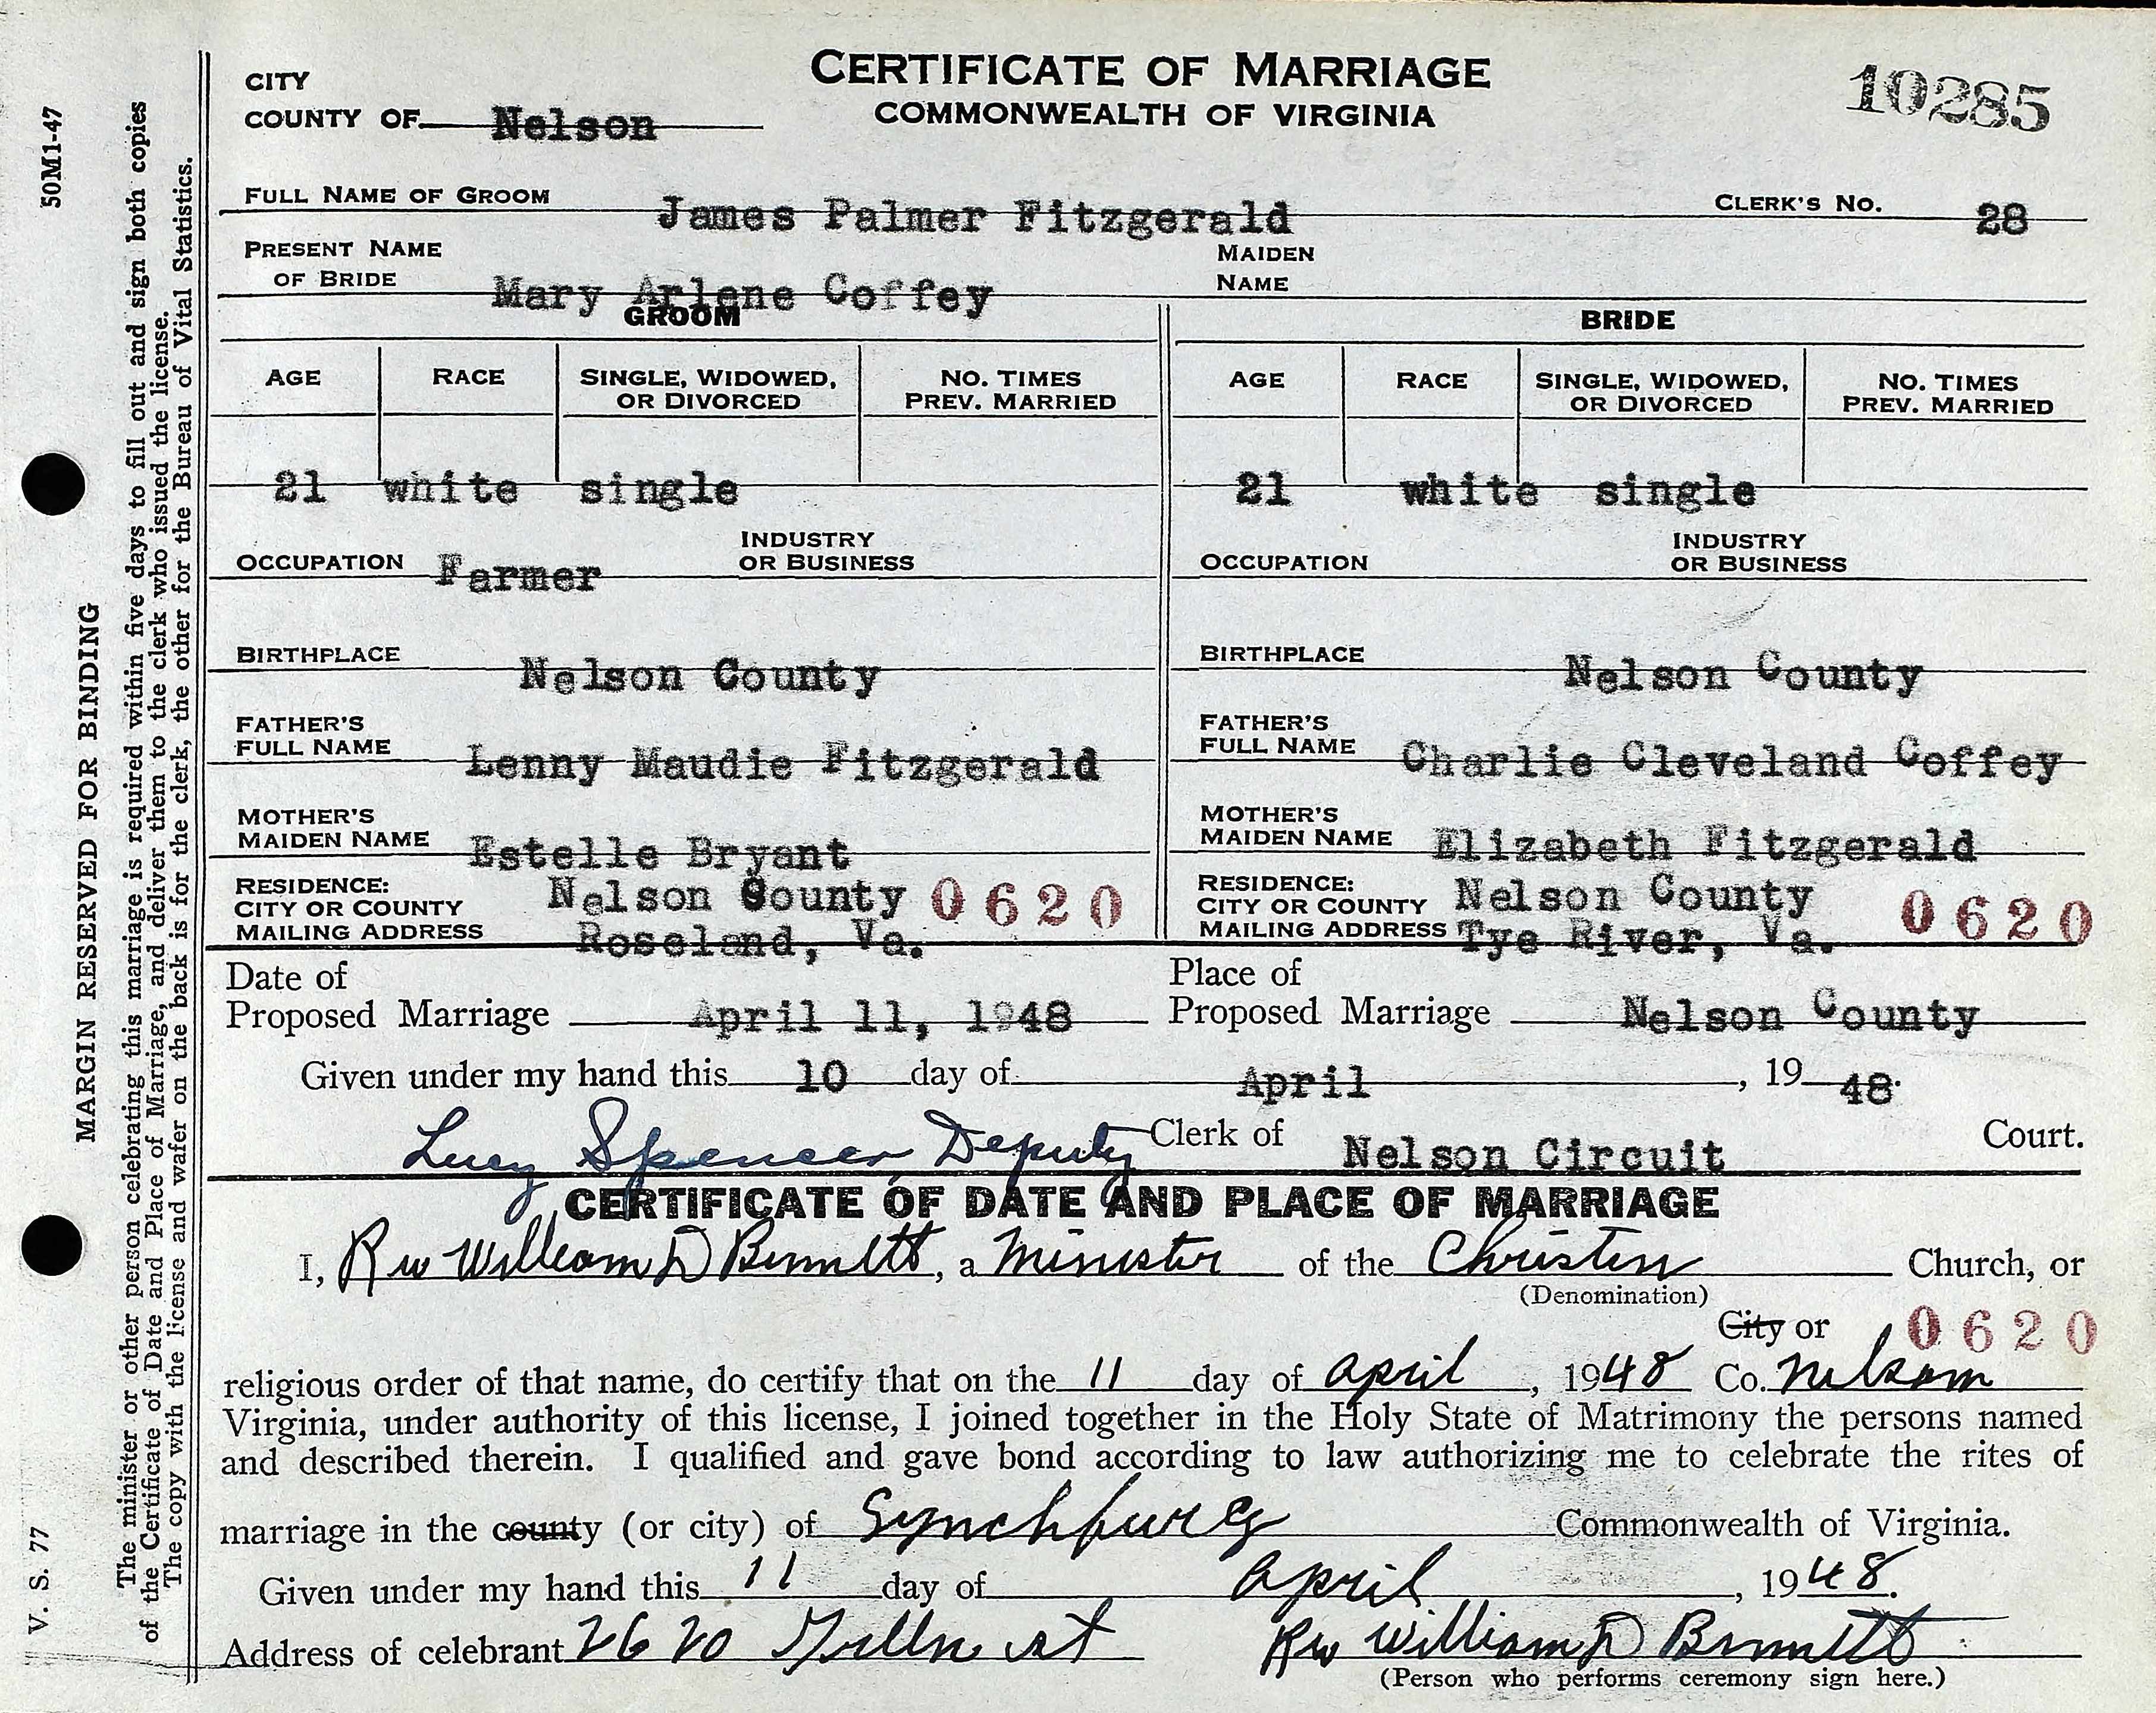 CERTIFICATE OF MARRIAGE
COMMONWEALTH OF VIRGINIA
10285
CITY
COUNTY OF Nelson
FULL NAME OF GROOM James Palmer Fitzgerald CLERK'S NO. 28
PRESENT NAME OF BRIDE Mary Arlene Coffey MAIDEN NAME
GROOM BRIDE
AGE RACE SINGLE, WIDOWED, OR DIVORCED NO. TIMES PREV. MARRIED AGE RACE SINGLE, WIDOWED, OR DIVORCED NO. TIMES PREV. MARRIED
21 white single 21 white single
OCCUPATION Farmer INDUSTRY OR BUSINESS OCCUPATION INDUSTRY OR BUSINESS
BIRTHPLACE Nelson County BIRTHPLACE Nelson County
FATHER'S FULL NAME Lenny Maudie Fitzgerald FATHER'S FULL NAME Charlie Cleveland Coffey
MOTHER'S MAIDEN NAME Estelle Bryant MOTHER'S MAIDEN NAME Elizabeth Fitzgerald
RESIDENCE: CITY OR COUNTY Nelson County 0620 RESIDENCE: CITY OR COUNTY Nelson County 0620
MAILING ADDRESS Roseland, Va. MAILING ADDRESS Tye River, Va.
Date of Proposed Marriage April 11, 1948 Place of Proposed Marriage Nelson County
Given under my hand this 10 day of April, 19 48.
Lucy Spencer, Deputy Clerk of Nelson Circuit Court.
CERTIFICATE OF DATE AND PLACE OF MARRIAGE
I, Rev William D Bennett, a Minister of the Christen Church, or
(Denomination)
City or 0620
religious order of that name, do certify that on the 11 day of April, 1948 Co. Nelson
Virginia, under authority of this license, I joined together in the Holy State of Matrimony the persons named
and described therein. I qualified and gave bond according to law authorizing me to celebrate the rites of
marriage in the county (or city) of Lynchburg Commonwealth of Virginia.
Given under my hand this 11 day of April, 1948.
Address of celebrant 2620 st Rev William D Bennett
(Person who performs ceremony sign here.)
50M1-47
MARGIN RESERVED FOR BINDING
V. S. 77
The minister or other person celebrating this marriage is required within five days to fill out and sign both copies
of the Certificate of Date and Place of Marriage, and deliver them to the clerk who issued the license.
The copy with the license and wafer on the back is for the clerk, the other for the Bureau of Vital Statistics.